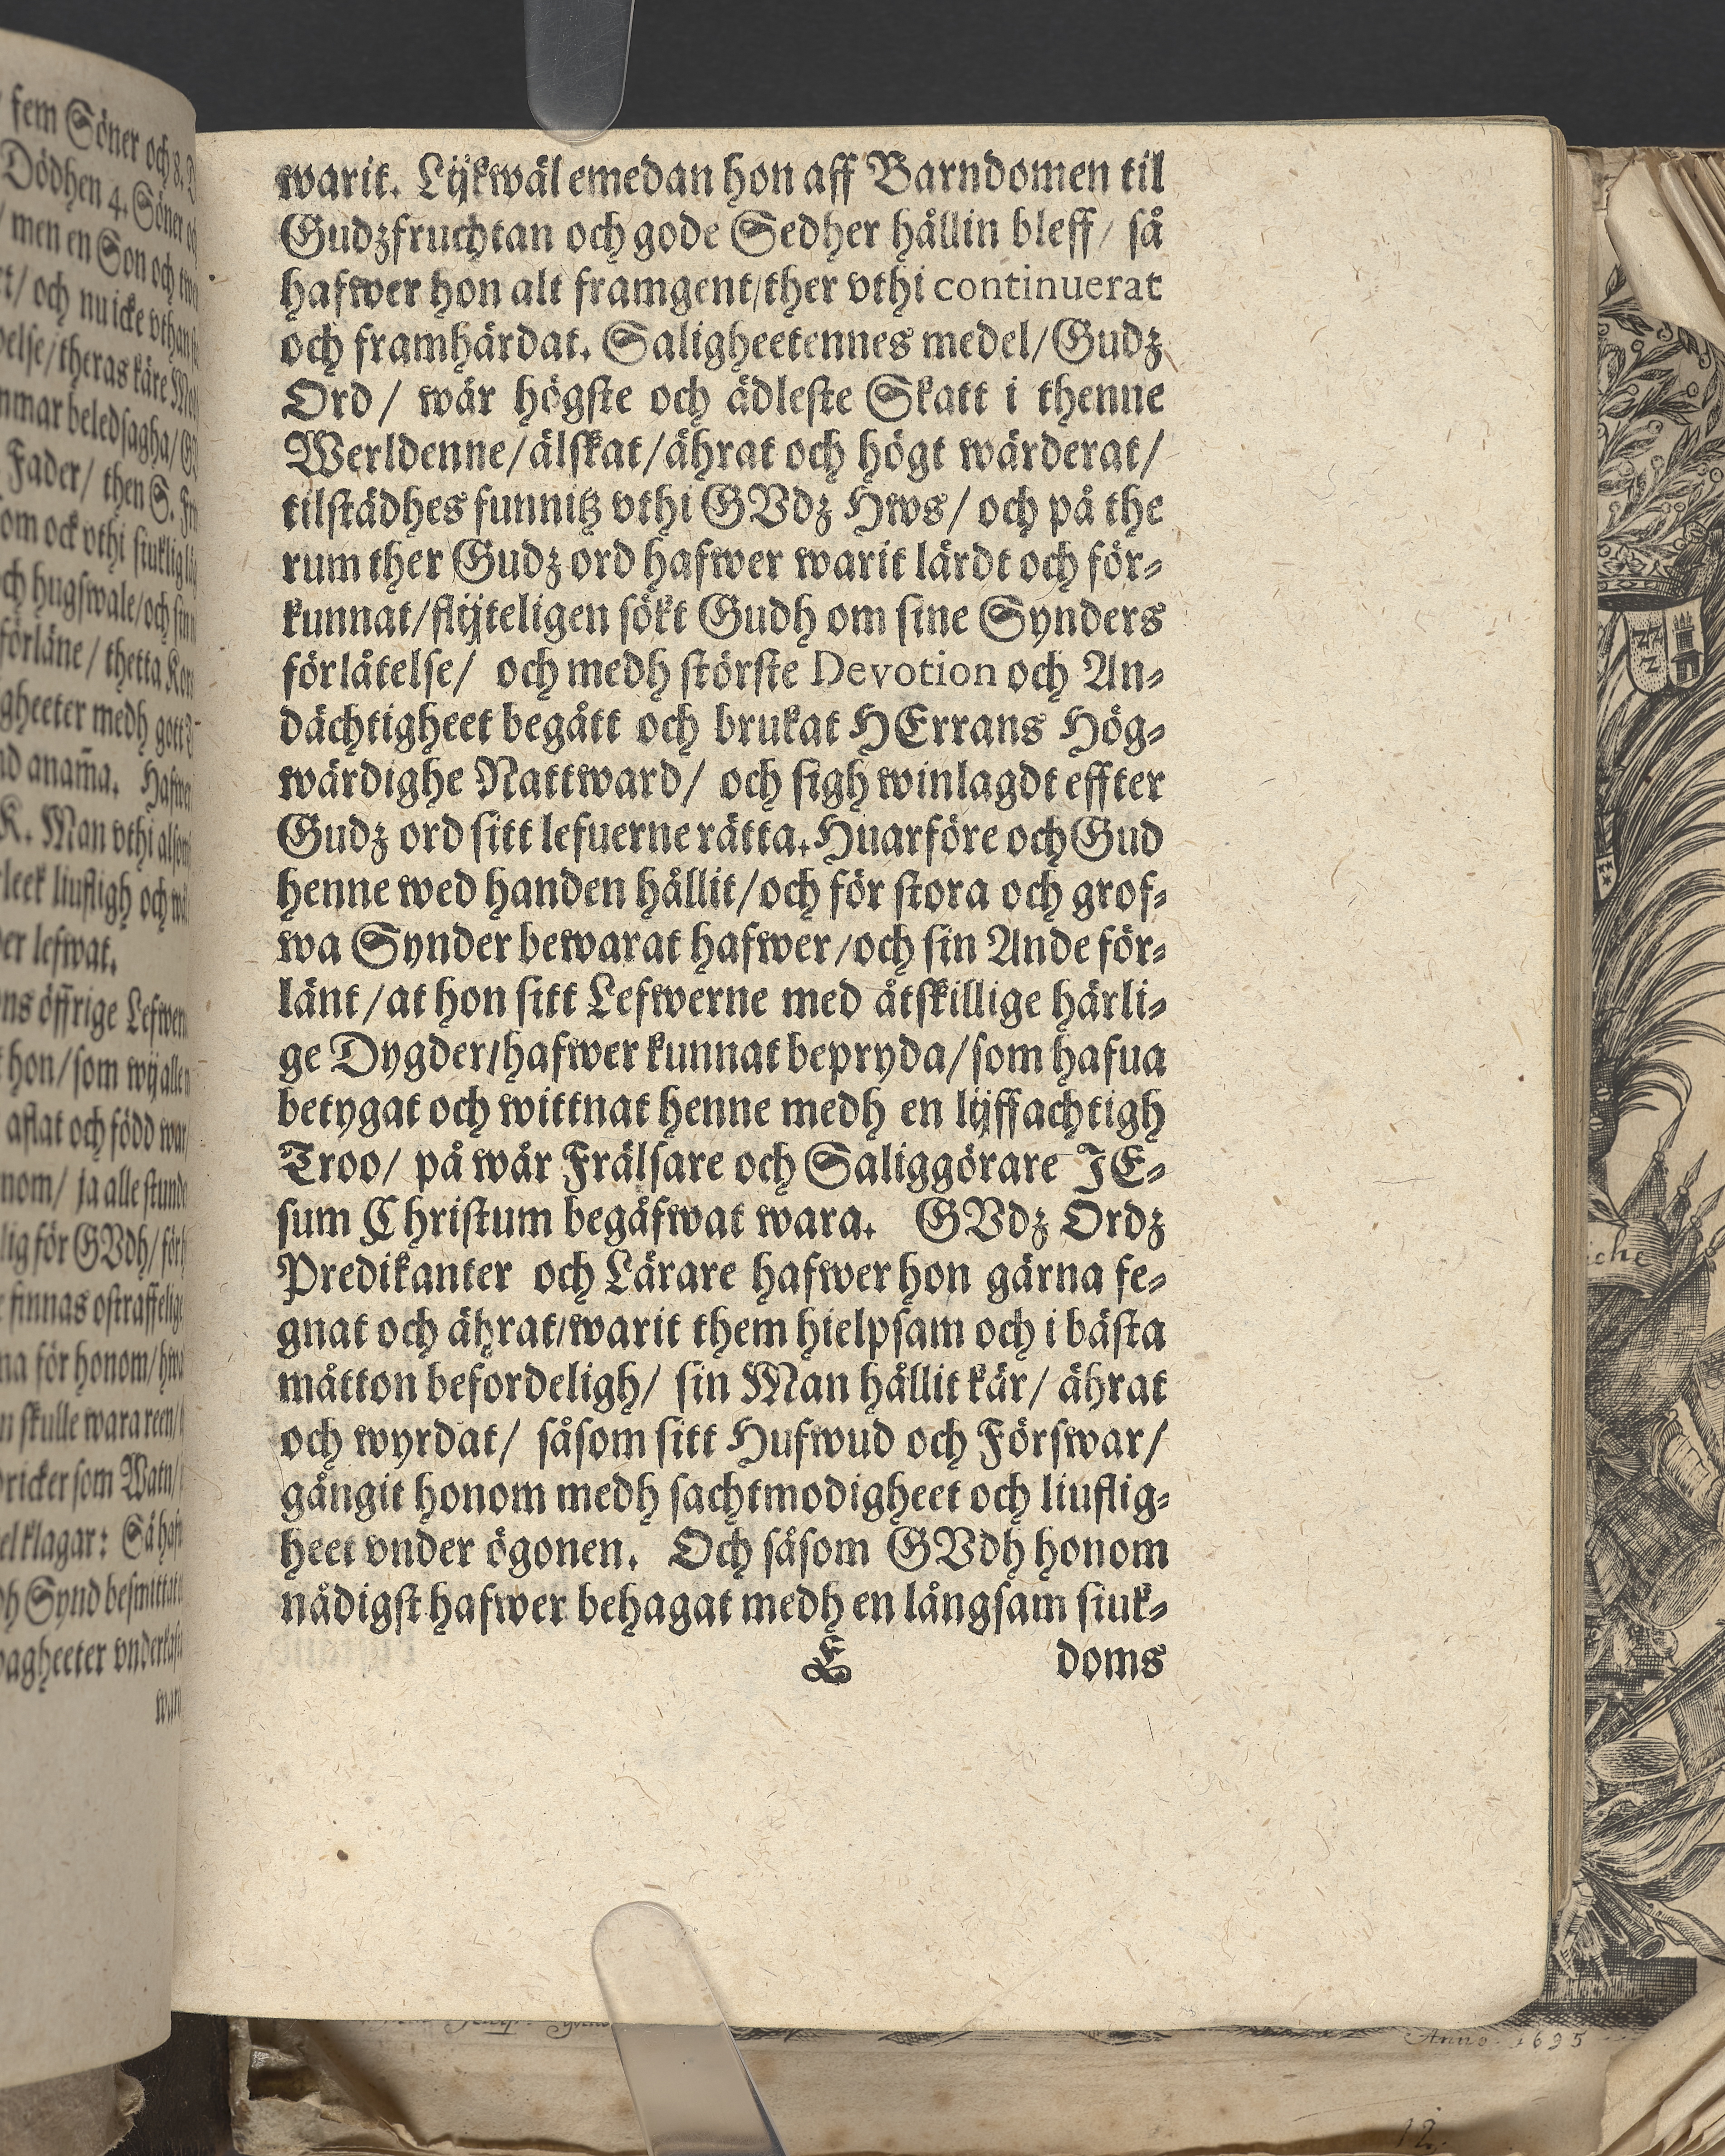 fem Söner och 8. D
Dödhen 4. Söner
men en Son och twå
och nu icke vthan
theras käre
beledsagha/
Fader/ then S.
ock vthi siuklig
hugswale/och sin
förläne/ thetta
gheeter medh gott
anam̃a. Hafwe
K. Man vthi
leek liufligh och
lefwat.
öffrige Lefwer
hon/som wij alle
aflat och född war
nom/ ja alle stunde
för GVdh/
finnas ostraffelige
för honom/
skulle wara reen/
dricker som Watn/
klagar: Så
Synd besmittat
vnder
wari
warit. Lijkwäl emedan hon aff Barndomen til
Gudzfruchtan och gode Sedher hållin bleff/ så
hafwer hon alt framgent/ther vthi continuerat
och framhärdat. Saligheetennes medel/Gudz
Ord/ wår högste och ädleste Skatt i thenne
Werldenne/älskat/ährat och högt wärderat/
tilstädhes funnitz vthi GVdz Hws/ och på the
rum ther Gudz ord hafwer warit lärdt och för-
kunnat/flijteligen sökt Gudh om sine Synders
förlåtelse/ och medh störste Devotion och An-
dächtigheet begått och brukat HErrans Hög-
wärdighe Nattward/ och sigh winlagdt effter
Gudz ord sitt lefuerne rätta. Huarföre och Gud
henne wed handen hållit/och för stora och grof-
wa Synder bewarat hafwer/och sin Ande för-
länt/at hon sitt Lefwerne med åtskillige härli-
ge Dygder/hafwer kunnat bepryda/som hafua
betygat och wittnat henne medh en lijffachtigh
Troo/ på wår Frälsare och Saliggörare JE-
sum Christum begåfwat wara. GVdz Ordz
Predikanter och Lärare hafwer hon gärna fe-
gnat och ährat/warit them hielpsam och i bästa
måtton befordeligh/ sin Man hållit kär/ ährat
och wyrdat/ såsom sitt Hufwud och Förswar/
gångit honom medh sachtmodigheet och liuflig-
heet vnder ögonen. Och såsom GVdh honom
nådigst hafwer behagat medh en långsam siuk-
E doms
iche
Anno 1695
12.